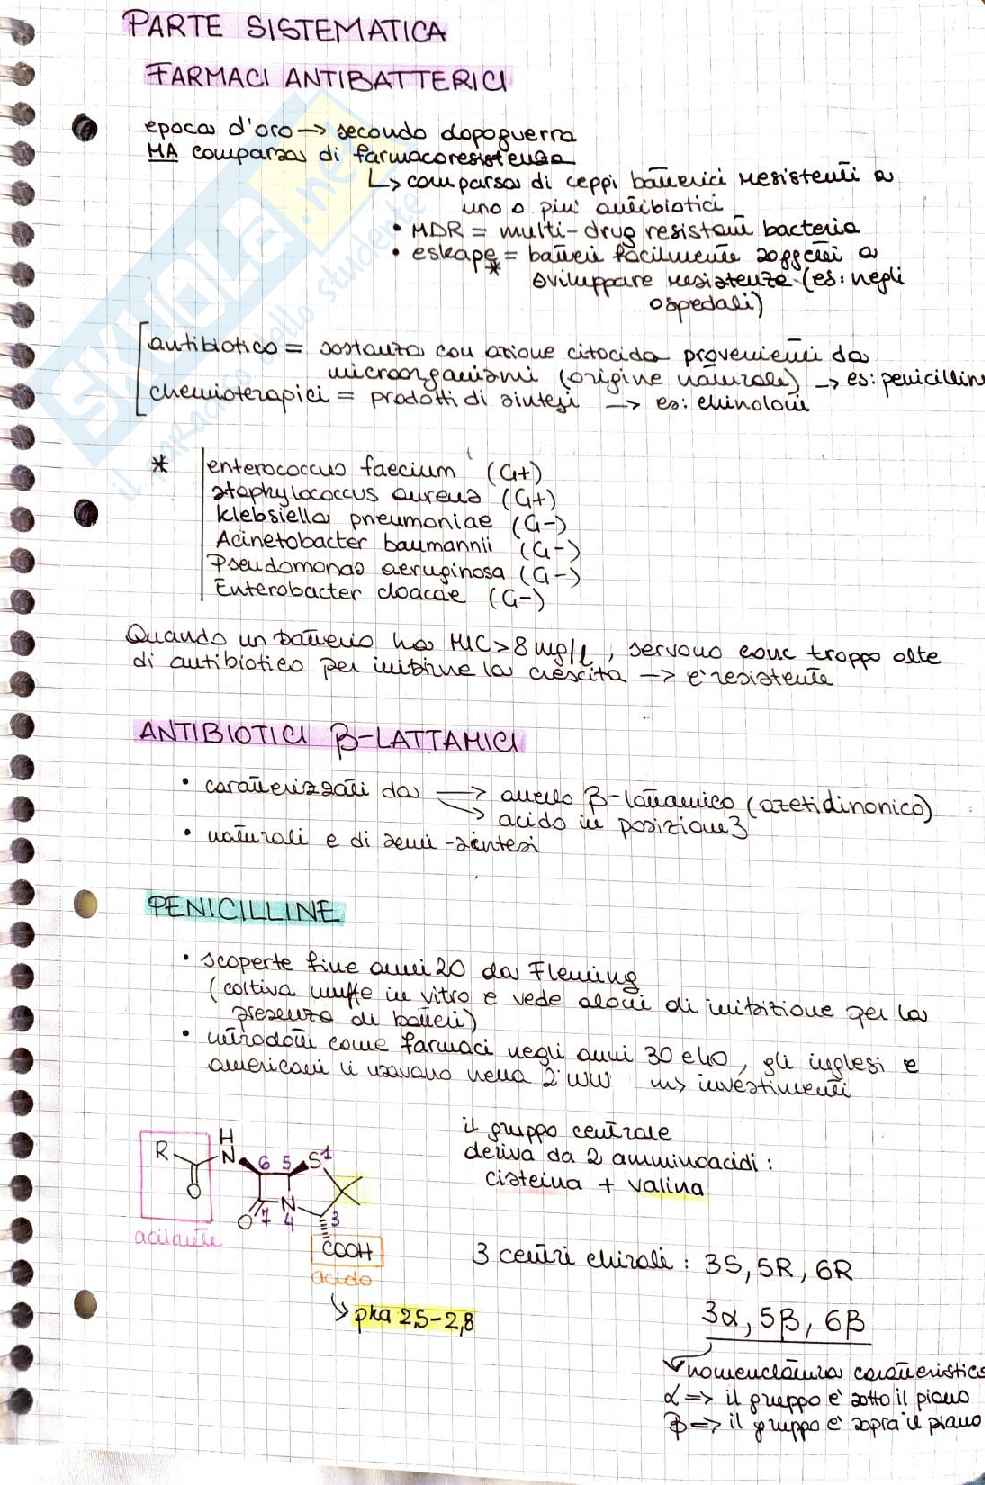 PARTE SISTEMATICA
FARMACI ANTIBATTERICI
epoca d'oro → secondo dopoguerra
MA comparsa di farmacoresistenza
↳ comparsa di ceppi batterici resistenti a
uno o piu' antibiotici
• MDR = multi-drug resistant bacteria
• eskape* = batteri facilmente soggetti a
sviluppare resistenza (es: negli
ospedali)
antibiotico = sostanza con azione citocida proveniente da
microorganismi (origine naturale) → es: penicilline
chemioterapici = prodotti di sintesi → es: chinoloni
* enterococcus faecium (G+)
staphylococcus aureus (G+)
klebsiella pneumoniae (G-)
Acinetobacter baumannii (G-)
Pseudomonas aeruginosa (G-)
Enterobacter cloacae (G-)
Quando un batterio ha MIC > 8 mg/l, servono conc troppo alte
di antibiotico per inibirne la crescita → e' resistente
ANTIBIOTICI β-LATTAMICI
• caratterizzati da → anello β-lattamico (azetidinonico)
→ acido in posizione 3
• naturali e di semi-sintesi
PENICILLINE
• scoperte fine anni 20 da Fleming
(coltiva muffe in vitro e vede aloni di inibizione per la
presenza di batteri)
• introdotti come farmaci negli anni 30 e 40, gli inglesi e
americani li usavano nella 2ª WW ⇝ investimenti
il gruppo centrale
deriva da 2 amminoacidi:
cisteina + valina
R O H N 6 5 S 1
O 7 N 4 3
acilante
COOH
acido
↳ pka 2,5-2,8
3 centri chirali: 3S, 5R, 6R
3α, 5β, 6β
nomenclatura caratteristica
α => il gruppo e' sotto il piano
β => il gruppo e' sopra il piano
SKUOLA.net
il paradiso dello studente